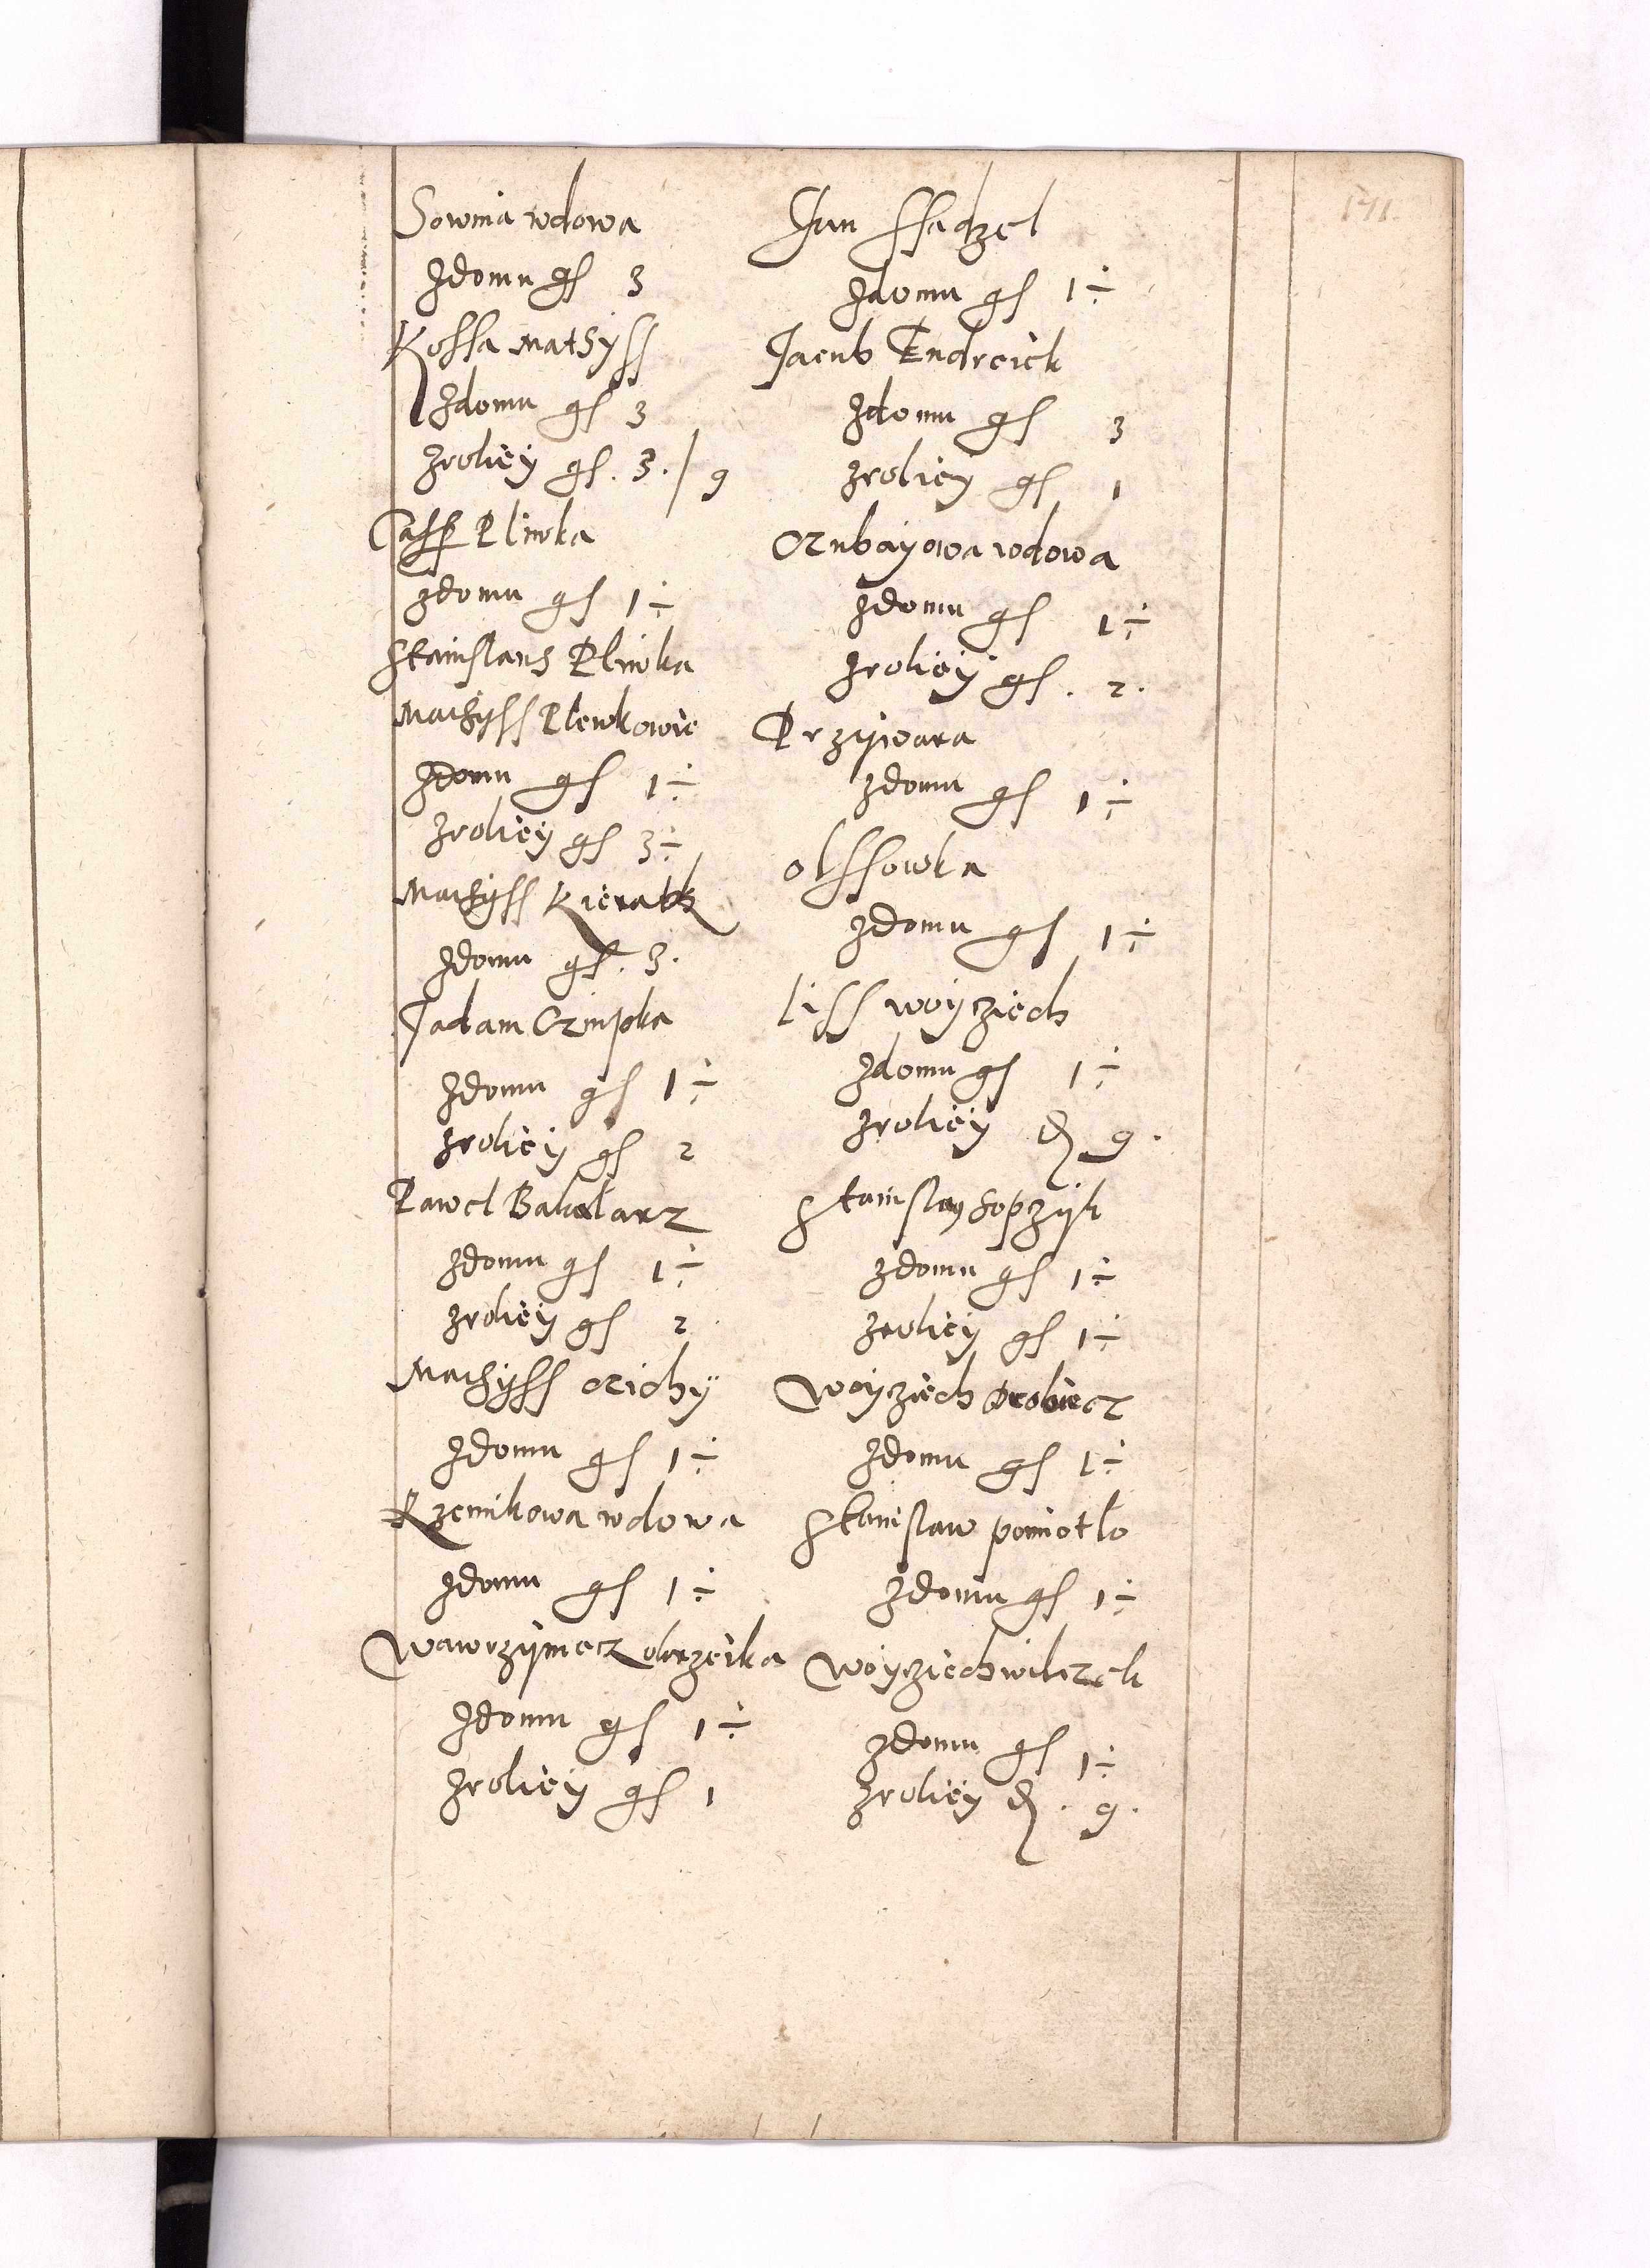 171.
Sowina wdowa
Zdomu gs 3
Kossa Matsyss
Zdomu gs 3
Zroliey gs. 3. / 9
Casp Pliwka
Zdomu gs 1 ÷
Stanislaus Pliwka
Machyss Plewkowie
Zdomu gs 1 ÷
Zroliey gs 3 ÷
Machyss Kieratk
Zdomu gs. 3.
Jadam Czupka
Zdomu gs 1 ÷
Zroliey gs 2
Pawel Bakalarz
Zdomu gs 1 ÷
Zroliey gs 2
Machyss czichy
Zdomu gs 1 ÷
Rzemikowa wdowa
Zdomu gs 1 ÷
Wawrzyniecz obrzeika
Zdomu gs 1 ÷
Zroliey gs 1
Jan Ssadzel
Zdomu gs 1 ÷
Jacub Endreick
Zdomu gs 3
Zroliey gs 1
Czubayowa wdowa
Zdomu gs 1 ÷
Zroliey gs. 2.
Przywara
Zdomu gs 1 ÷
Olssowka
Zdomu gs 1 ÷
Liss woycziech
Zdomu gs 1 ÷
Zroliey d 9.
Stanislay Sopzyk
Zdomu gs 1 ÷
Zroliey gs 1 ÷
Woyziech Drobiecz
Zdomu gs 1 ÷
Stanislaw pomiotlo
Zdomu gs 1 ÷
Woyziech wilczek
Zdomu gs 1 ÷
Zroliey d. 9.